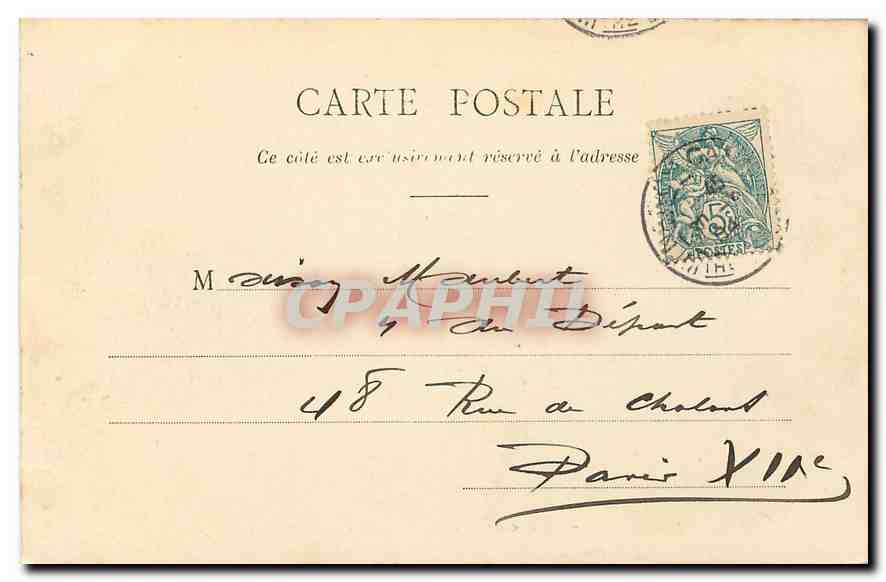 CARTE POSTALE
Ce côté est exclusivement réservé à l'adresse
5c
POSTES
M Maubert
du Départ
48 Rue de Chalons
Paris XIIe
CPAPHIL